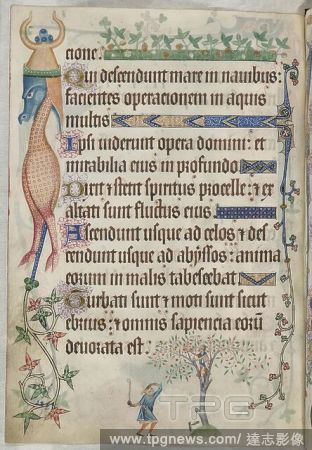 cione.
Qui descendunt mare in nauibus:
facientes operacionem in aquis
multis
Ipsi uiderunt opera domini: et
mirabilia eius in profundo
Dixit & stetit spiritus procelle: & ex
altati sunt fluctus eius.
Ascendunt usque ad celos & des
cendunt usque ad abyssos: anima
eorum in malis tabescebat
Turbati sunt & moti sunt sicut
ebrius: & omnis sapiencia eorū
deuorata est.
TPG
www.tpgnews.com / 達志影像